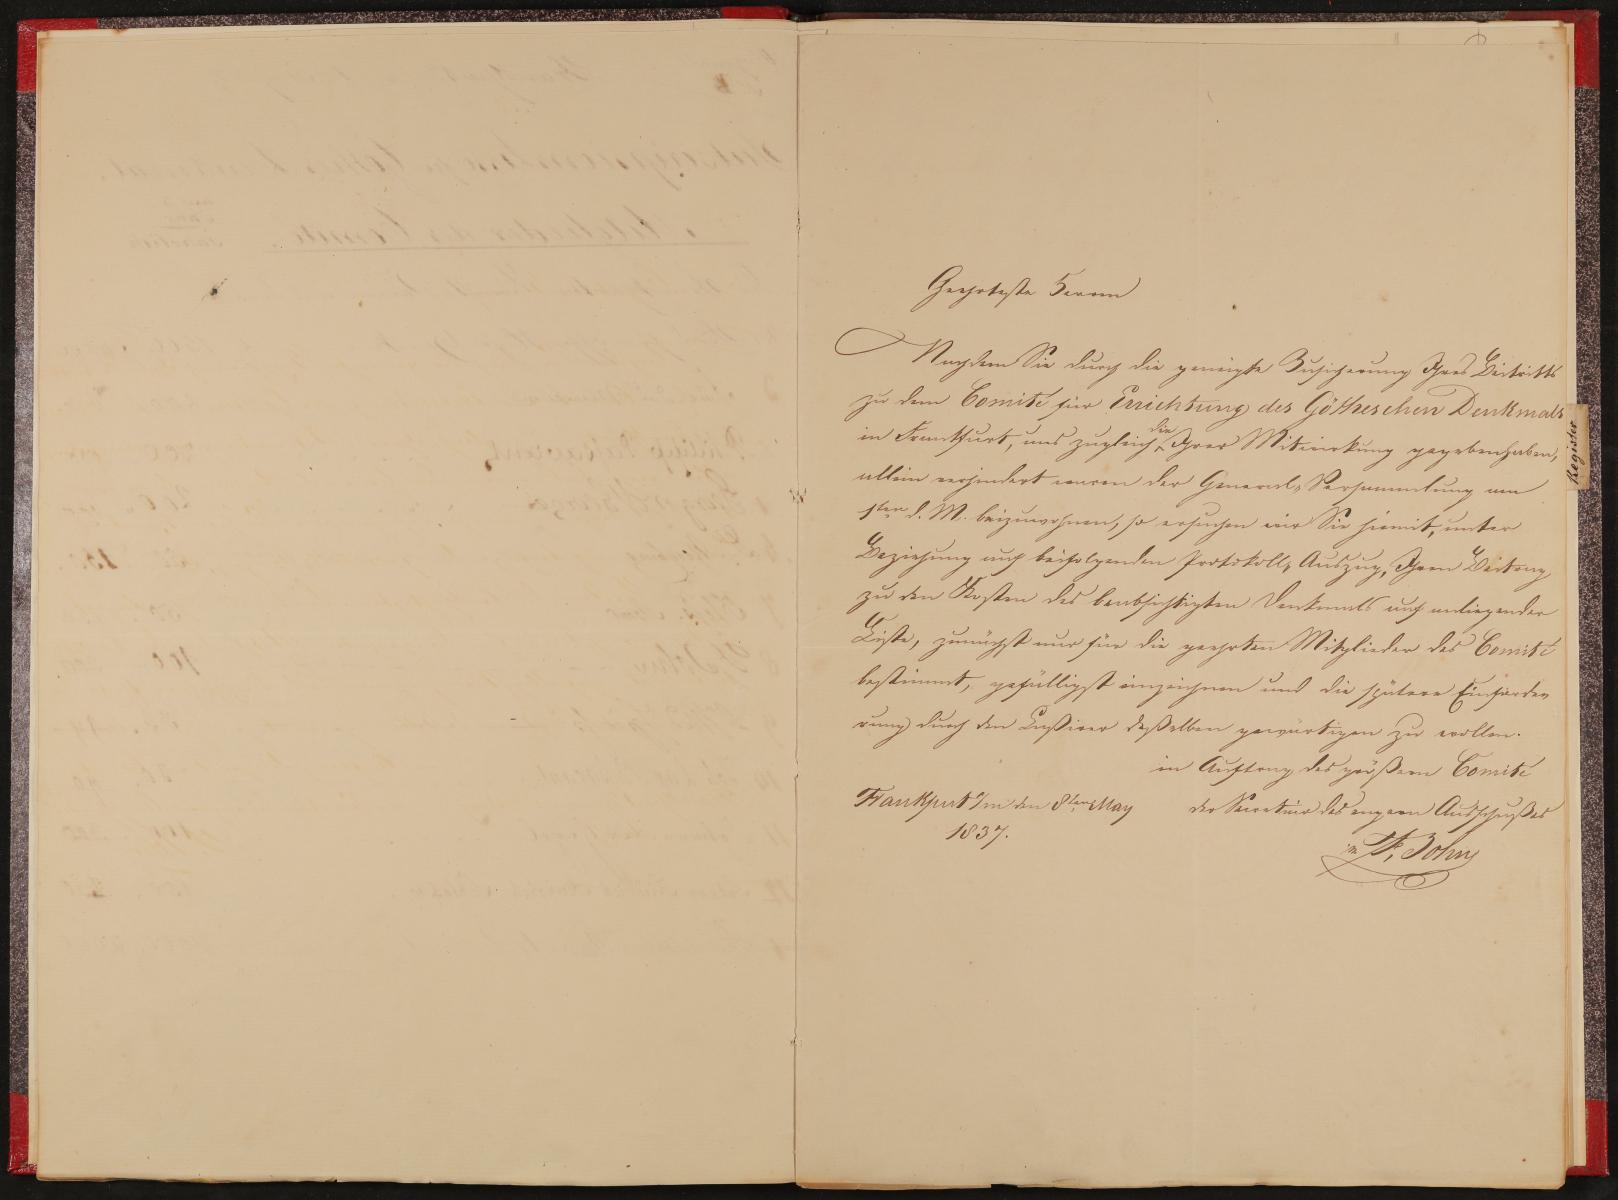 Geehrteste Herrn
Nachdem Sie durch die geneigte Zusicherung Ihres Beitritts
zu dem Comité für Errichtung des Götheschen Denkmals
in Frankfurt, uns zugleich die Ihrer Mitwirkung gegeben haben,
allein verhindert waren der General-Versammlung am
1ten d. M. beizuwohnen, so ersuchen wir Sie hiemit, unter
Beziehung auf beifolgenden Protokoll-Auszug, Ihren Beitrag
zu den Kosten des beabsichtigten Denkmals auf anliegender
Liste, zunächst nur für die geehrten Mitglieder des Comité
bestimmt, gefälligst einzeichnen und die spätere Einforde
rung durch den Cassirer desselben gewärtigen zu wollen.
im Auftrag des größern Comité
Frankfurt a/m den 8ten May
1837.
der Secretair des engern Ausschußes
F. John
Register